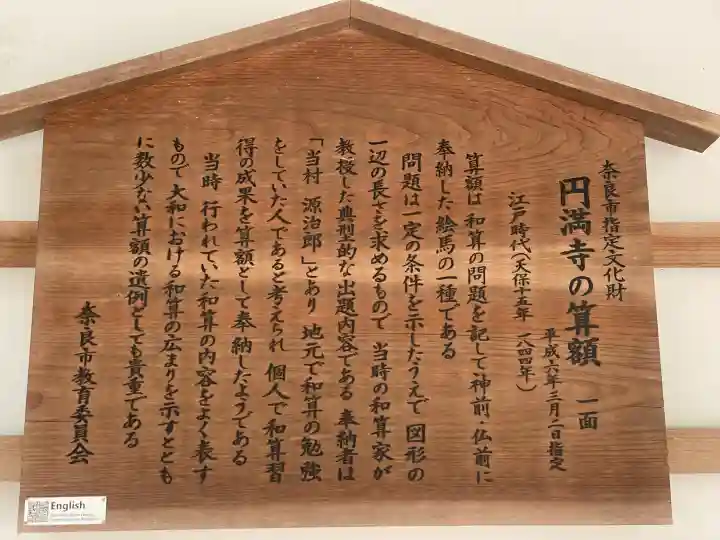 奈良市指定文化財
円満寺の算額 一面
平成六年三月二日指定
江戸時代(天保十五年 一八四四年)
算額は 和算の問題を記して 神前・仏前に
奉納した 絵馬の一種である
問題は 一定の条件を示したうえで 図形の
一辺の長さを求めるもので 当時の和算家が
教授した典型的な出題内容である 奉納者は
「当村 源治郎」とあり 地元で和算の勉強
をしていた人であると考えられ 個人で和算習
得の成果を算額として奉納したようである
当時 行われていた和算の内容をよく表す
もので 大和における和算の広まりを示すととも
に 数少ない算額の遺例としても貴重である
奈良市教育委員会
English